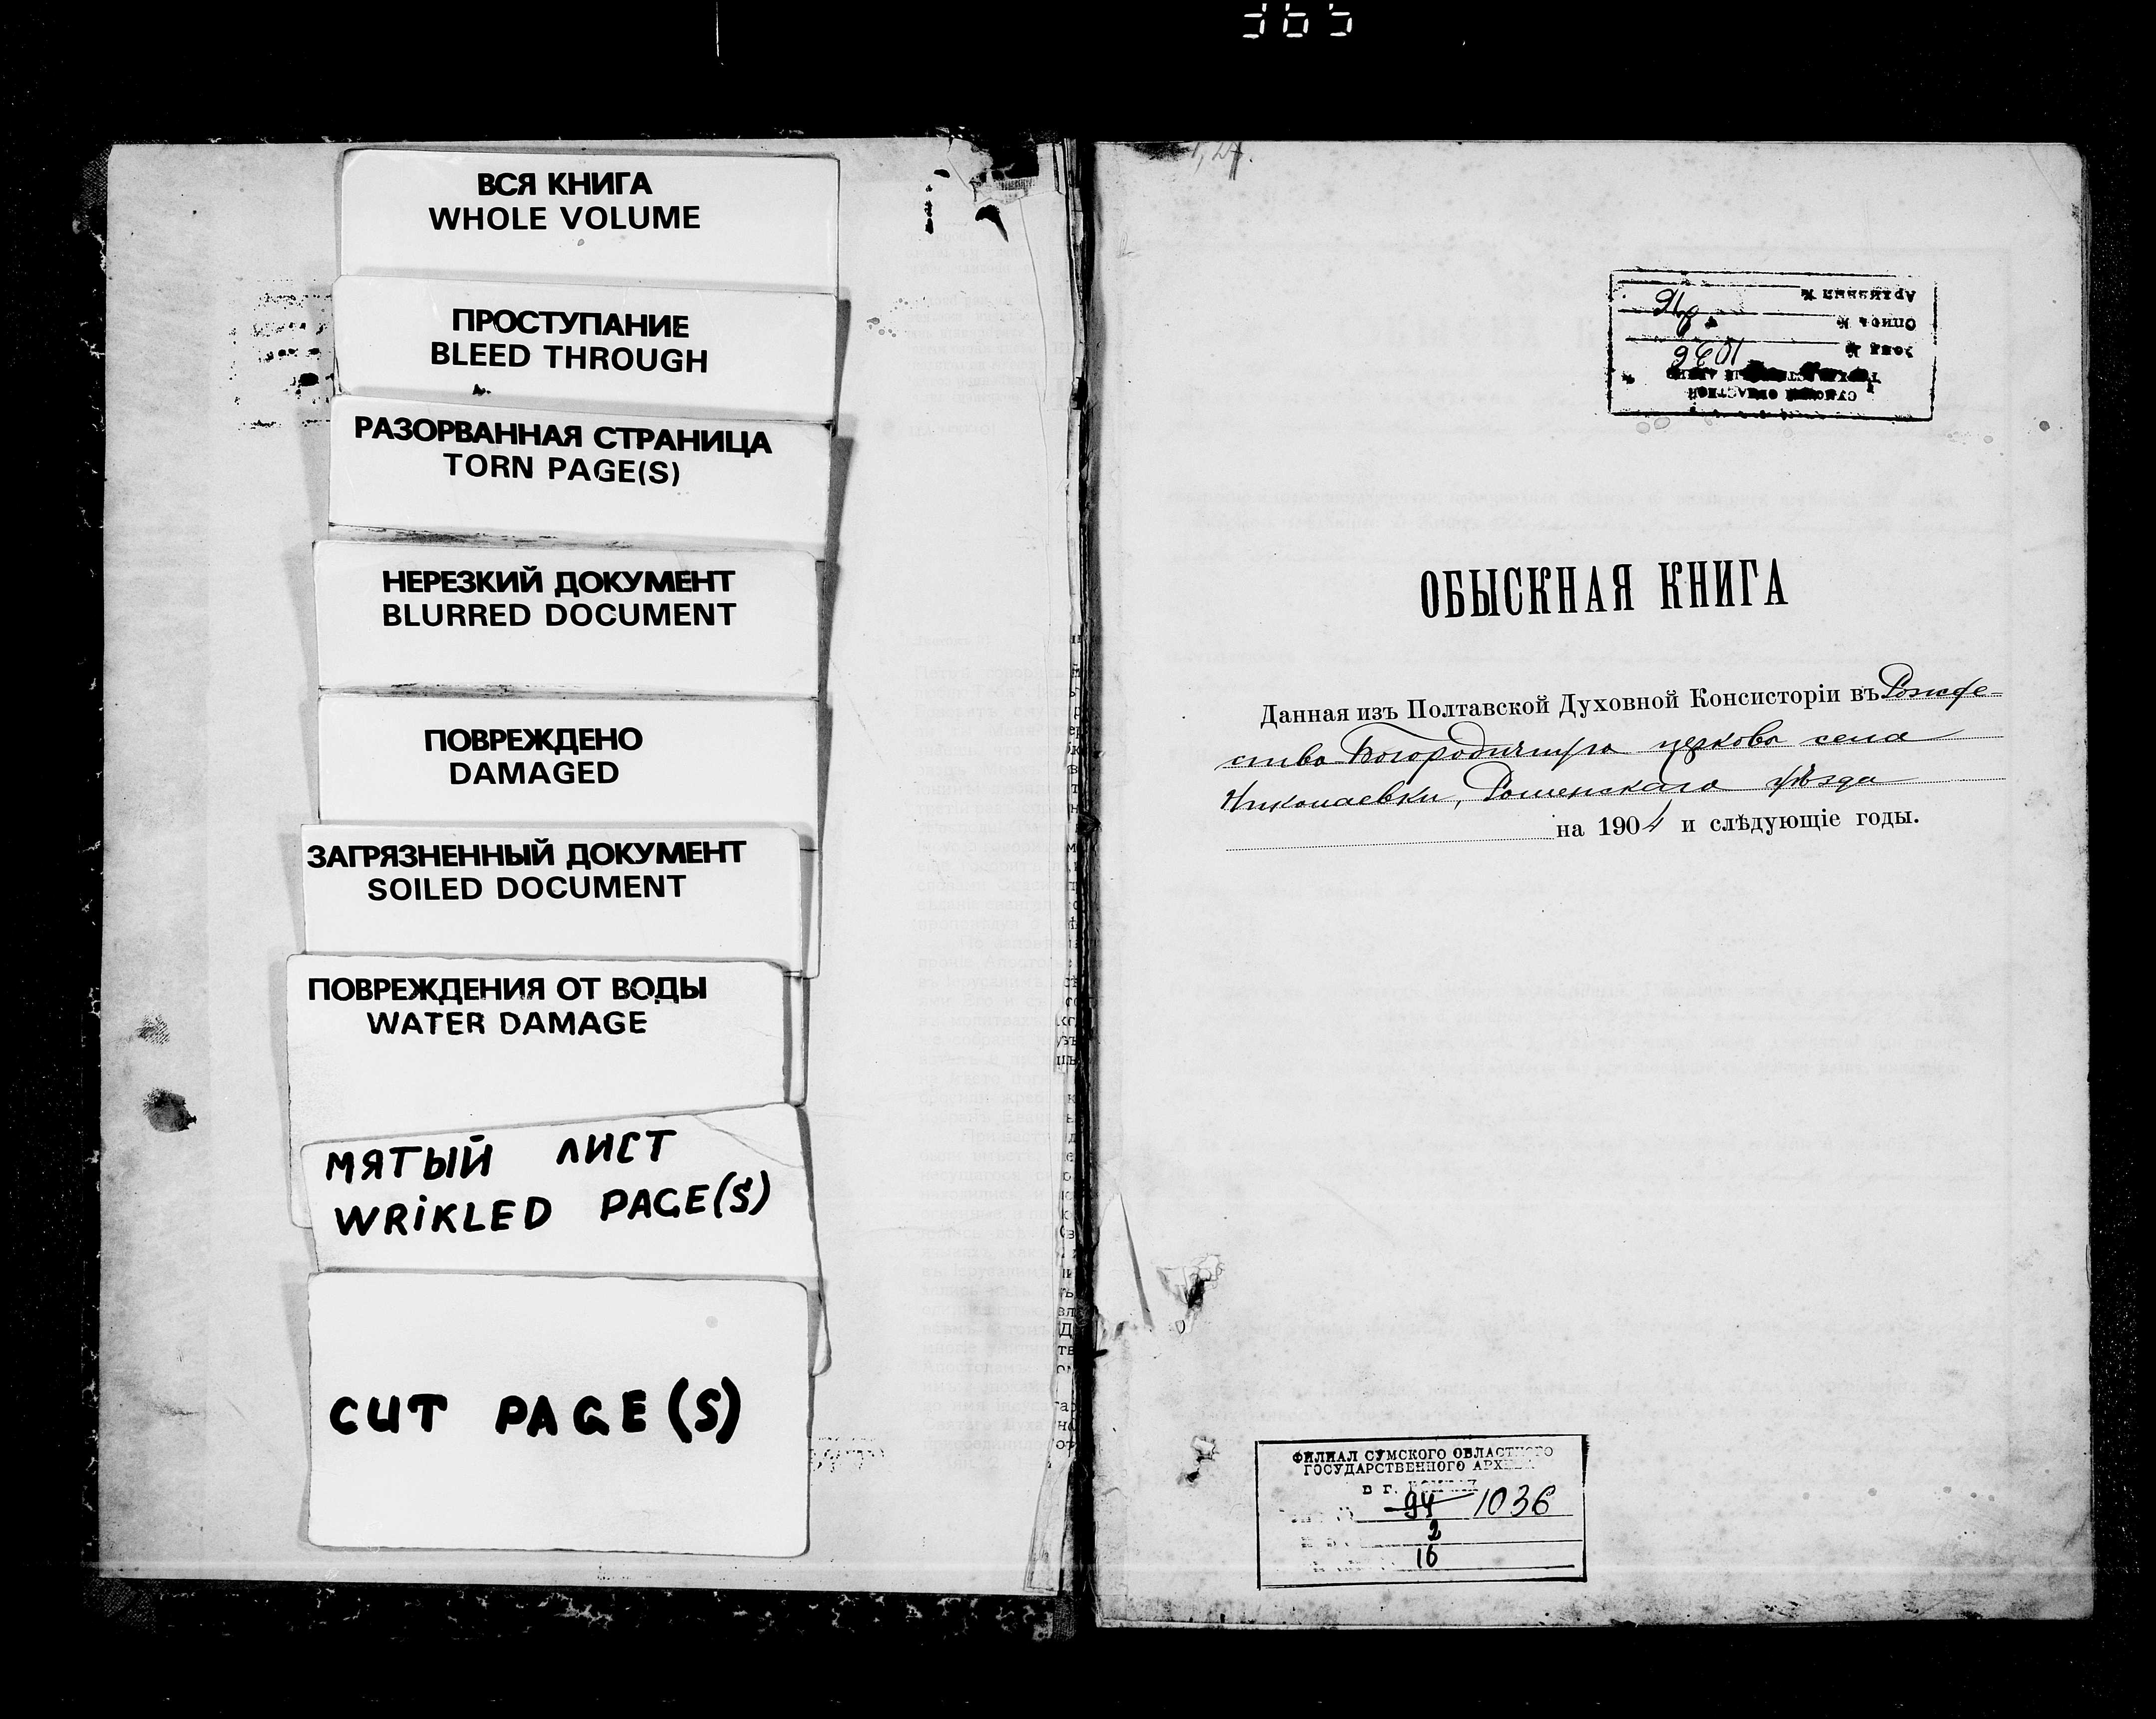 365
ВСЯ КНИГА
WHOLE VOLUME
ПРОСТУПАНИЕ
BLEED THROUGH
РАЗОРВАННАЯ СТРАНИЦА
TORN PAGE(S)
НЕРЕЗКИЙ ДОКУМЕНТ
BLURRED DOCUMENT
ПОВРЕЖДЕНО
DAMAGED
ЗАГРЯЗНЕННЫЙ ДОКУМЕНТ
SOILED DOCUMENT
ПОВРЕЖДЕНИЯ ОТ ВОДЫ
WATER DAMAGE
МЯТЫЙ ЛИСТ
WRIKLED PAGE(S)
CUT PAGE(S)
СУМСКОЙ ОБЛАСТНОЙ
Фонд № 1036
Опись №
Архивный №
ОБЫСКНАЯ КНИГА
Данная изъ Полтавской Духовной Консисторіи въ Рожде-
ство Богородичную церковь села
Николаевки, Роменскаго уѣзда
на 1904 и слѣдующіе годы.
ФИЛИАЛ СУМСКОГО ОБЛАСТНОГО
ГОСУДАРСТВЕННОГО АРХИВА
в г.
94 1036
2
16